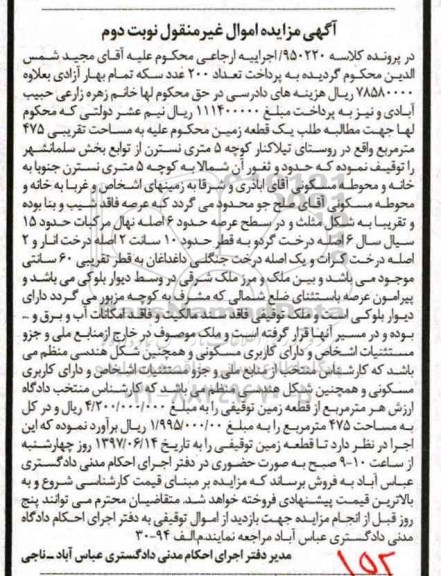 آگهی مزایده اموال غیرمنقول نوبت دوم
در پرونده کلاسه ۹۵۰۲۲۰/اجراییه ارجاعی محکوم علیه آقای مجید شمس
الدین محکوم گردیده به پرداخت تعداد ۲۰۰ عدد سکه تمام بهار آزادی بعلاوه
۷۸۵۸۰۰۰۰ ریال هزینه های دادرسی در حق محکوم لها خانم زهره زارعی حبیب
آبادی و نیز به پرداخت مبلغ ۱۱۱۴۰۰۰۰۰ ریال نیم عشر دولتی که محکوم
لها جهت مطالبه طلب یک قطعه زمین محکوم علیه به مساحت تقریبی ۴۷۵
مترمربع واقع در روستای تیلاکنار کوچه ۵ متری نسترن از توابع بخش سلمانشهر
را توقیف نموده که حدود و ثغور آن شمالا به کوچه ۵ متری نسترن جنوبا به
خانه و محوطه مسکونی آقای اباذری و شرقا به زمینهای اشخاص و غربا به خانه و
محوطه مسکونی آقای صلح جو محدود می گردد که عرصه فاقد شیب و بنا بوده
و تقریبا به شکل مثلث و در سطح عرصه حدود ۶ اصله نهال مرکبات حدود ۱۵
سیال سال ۶ اصله درخت گردو به قطر حدود ۱۰ سانت ۲ اصله درخت انار و ۲
اصله درخت کرات و یک اصله درخت جنگلی داغداغان به قطر تقریبی ۶۰ سانتی
موجود می باشد و بین ملک و مرز ملک شرقی در وسط دیوار بلوکی می باشد و
پیرامون عرصه باستثنای ضلع شمالی که مشرف به کوچه مزبور می گردد دارای
دیوار بلوکی است و ملک توقیفی فاقد سند مالکیت و فاقد امکانات آب و برق و -
بوده و در مسیر آنها قرار گرفته است و ملک موصوف در خارج ازمنابع ملی و جزو
مستثنیات اشخاص و دارای کاربری مسکونی و همچنین شکل هندسی منظم می
باشد که کارشناس منتخب از منابع ملی و جزو مستثنیات اشخاص و دارای کاربری
مسکونی و همچنین شکل هندسی منظم می باشد که کارشناس منتخب دادگاه
ارزش هر مترمربع از قطعه زمین توقیفی را به مبلغ ۴/۲۰۰/۰۰۰/۰۰۰ ریال و در کل
به مساحت ۴۷۵ مترمربع را به مبلغ ۱/۹۹۵/۰۰۰/۰۰ ریال برآورد نموده که این
اجرا در نظر دارد تا قطعه زمین توقیفی را به تاریخ ۱۳۹۷/۰۶/۱۴ روز چهارشنبه
از ساعت ۱۰-۹ صبح به صورت حضوری در دفتر اجرای احکام مدنی دادگستری
عباس آباد به فروش برساند که مزایده بر مبنای قیمت کارشناسی شروع و به
بالاترین قیمت پیشنهادی فروخته خواهد شد. متقاضیان محترم می توانند پنج
روز قبل از انجام مزایده جهت بازدید از اموال توقیفی به دفتر اجرای احکام دادگاه
مدنی دادگستری عباس آباد مراجعه نمایند.م.الف ۹۴-۳۰
مدیر دفتر اجرای احکام مدنی دادگستری عباس آباد - ناجی
۱۵۲